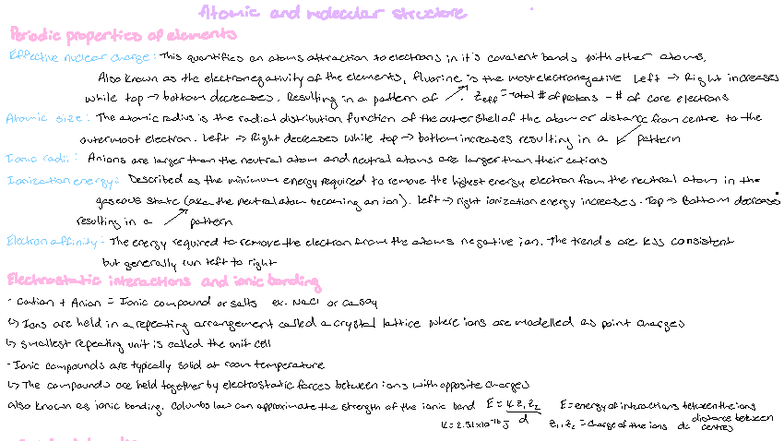 Atomic and molecular structure
Periodic properties of elements
Effective nuclear charge: This quantifies an atoms attraction to electrons in it's covalent bonds with other atoms.
Also known as the electronegativity of the elements, fluorine is the most electronegative Left → Right increases
while top → bottom decreases. Resulting in a pattern of ↗. Zeff = total # of protons - # of core electrons
Atomic size: The atomic radius is the radial distribution function of the outer shell of the atom or distance from centre to the
outermost electron. Left → Right decreases while top → bottom increases resulting in a ↙ pattern
Ionic radii: Anions are larger than the neutral atom and neutral atoms are larger than their cations
Ionization energy: Described as the minimum energy required to remove the highest energy electron from the neutral atom in the
gaseous state (aka the neutral atom becoming an ion). Left → right ionization energy increases. Top → Bottom decreases
resulting in a ↗ pattern
Electron affinity: The energy required to remove the electron from the atoms negative ion. The trends are less consistent
but generally run left to right
Electrostatic interactions and ionic bonding
- Cation + Anion = Ionic compound or salts ex. NaCl or CaSO4
↳ Ions are held in a repeating arrangement called a crystal lattice where ions are modelled as point charges
↳ smallest repeating unit is called the unit cell
- Ionic compounds are typically solid at room temperature
↳ The compounds are held together by electrostatic forces between ions with opposite charges
also known as ionic bonding. Columbs law can approximate the strength of the ionic bond E = k Z1 Z2 / d E = energy of interactions between the ions
k = 2.31 x10^-16 J Z1, Z2 = charge of the ions d = distance between centres